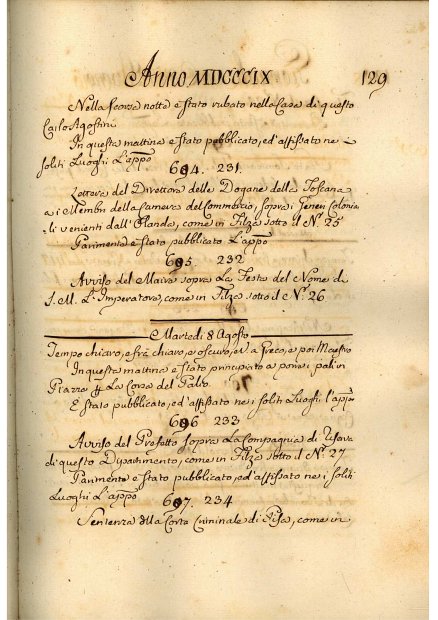 Anno MDCCCIX 129
Nella scorsa notte è stato rubato nella Casa di questo
Carlo Agostini
In questa mattina è stato pubblicato, ed'affissato ne i
soliti Luoghi L'appo
604. 231.
Lettera del Direttore delle Dogane della Toscana
a i Membri della Camera del Commercio, sopra i Generi Colonia
li venienti dall'Olanda, come in Filza sotto il N.º 25
Parimente è stato pubblicato L'appo
605 232
Avviso del Maire sopra La Festa del Nome di
S. M. L'Imperatore, come in Filza sotto il N.º 26
Martedì 8 Agosto
Tempo chiaro, e frà chiaro, e oscuro, et a Greco, e poi Maestro
In questa mattina è stato principiato a porre i pali in
Piazza p La Corsa del Palio.
È stato pubblicato, ed'affissato ne i soliti Luoghi l'appo
606 233
Avviso del Prefetto sopra La Compagnia di Riserva
di questo Dipartimento, come in Filza sotto il N.º 27
Parimente è stato pubblicato, ed'affissato ne i soliti
Luoghi L'appo
607. 234
Sentenza della Corte Criminale di Pisa, come in